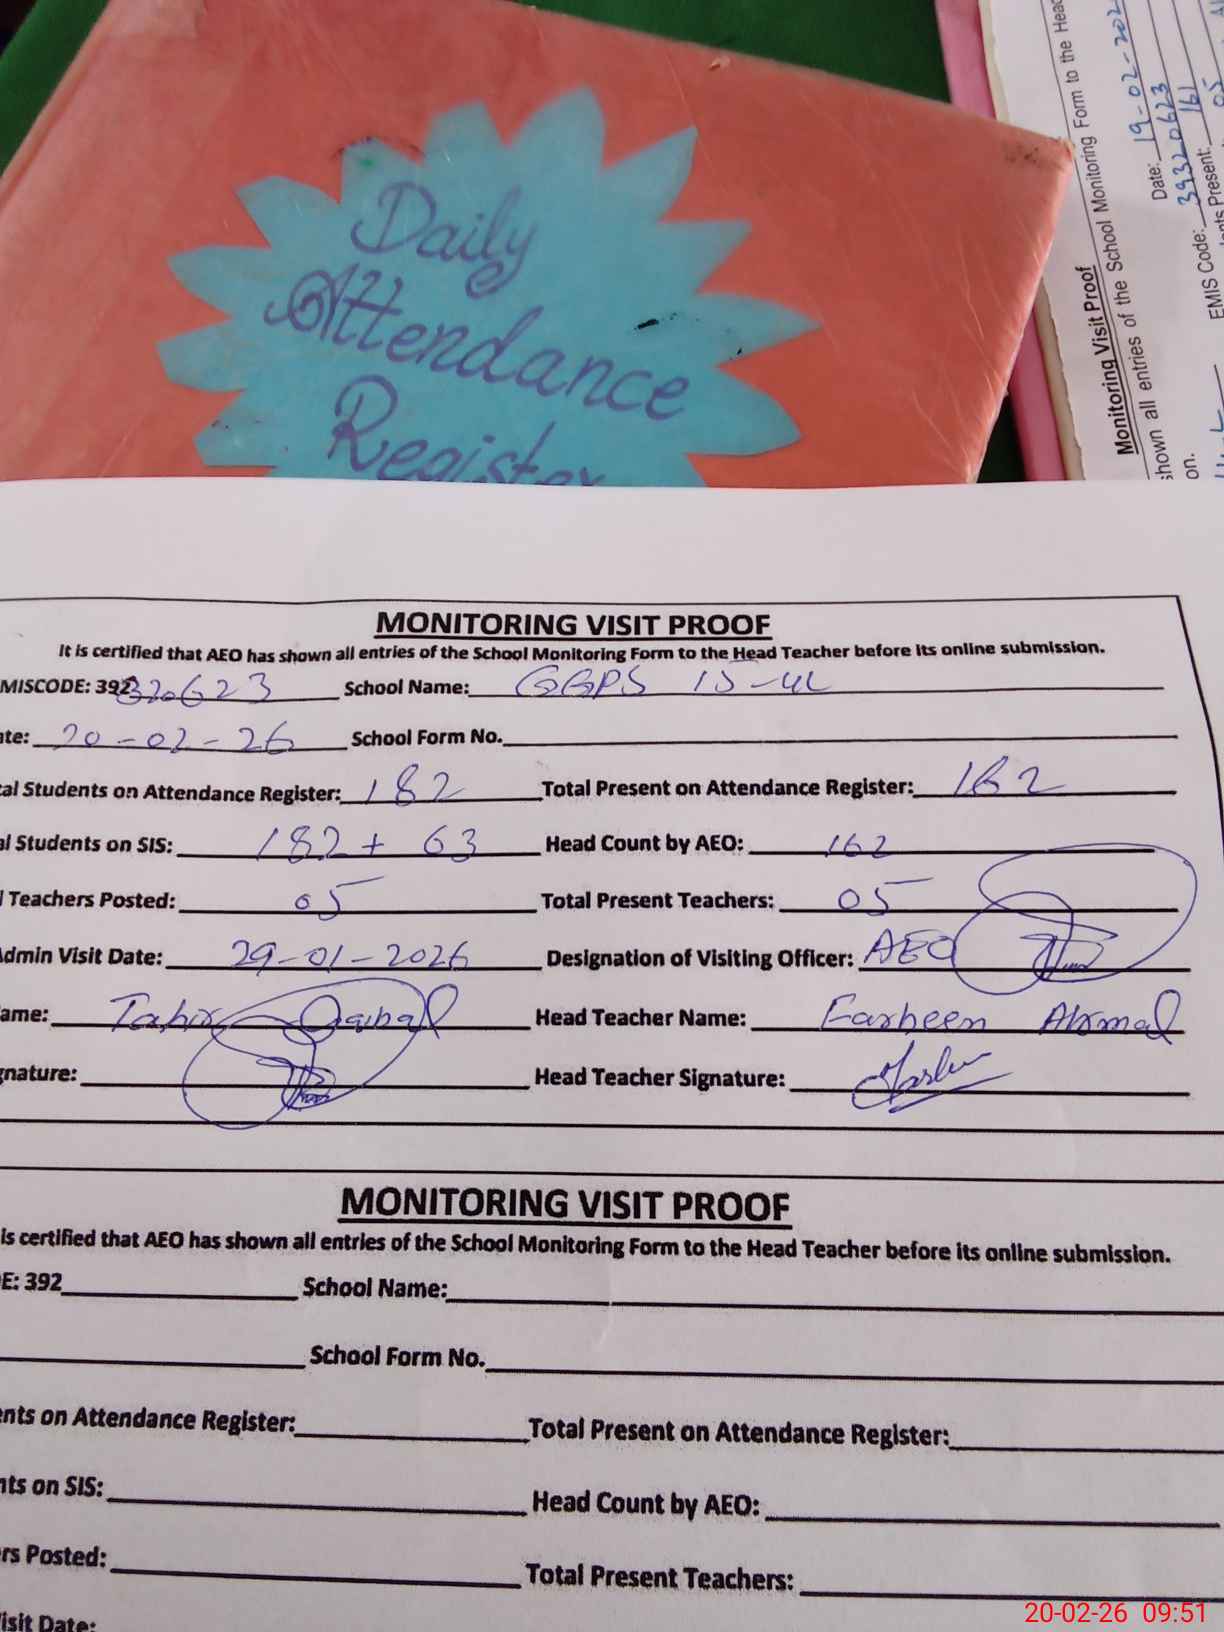 Daily
Attendance
Register
Monitoring Visit Proof
shown all entries of the School Monitoring Form to the Head
on.
Date: 19-02-202
39320623
EMIS Code: 161
nts Present: 05
MONITORING VISIT PROOF
It is certified that AEO has shown all entries of the School Monitoring Form to the Head Teacher before its online submission.
MISCODE: 39320623 School Name: GGPS 15-4L
ate: 20-02-26 School Form No.
tal Students on Attendance Register: 182 Total Present on Attendance Register: 162
al Students on SIS: 182 + 63 Head Count by AEO: 162
l Teachers Posted: 05 Total Present Teachers: 05
Admin Visit Date: 29-01-2026 Designation of Visiting Officer: AEO
ame: Tahir Head Teacher Name: Farheen Akmal
gnature: Head Teacher Signature:
MONITORING VISIT PROOF
is certified that AEO has shown all entries of the School Monitoring Form to the Head Teacher before its online submission.
E: 392 School Name:
School Form No.
ents on Attendance Register: Total Present on Attendance Register:
nts on SIS: Head Count by AEO:
rs Posted: Total Present Teachers:
isit Date:
20-02-26 09:51